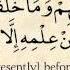 هُمْ وَمَا خَلْفَ
مِنْ عِلْمِهِ إِلَّا
resently) befor